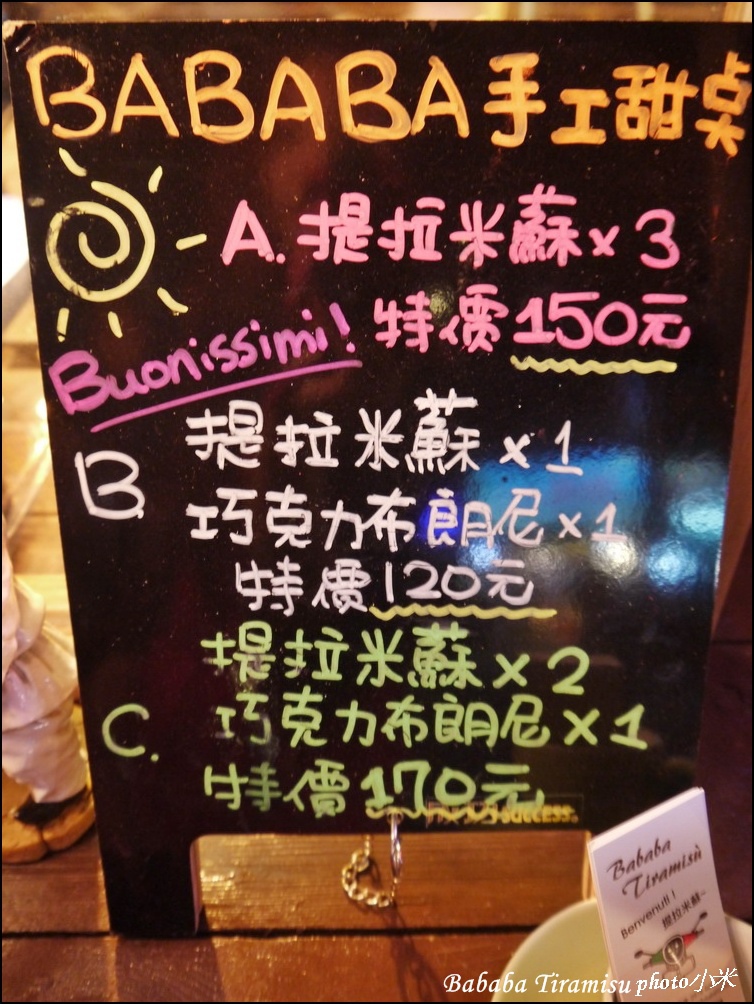 BABABA手工甜桌
A.提拉米蘇x3
特價150元
Buonissimi!
B
提拉米蘇x1
巧克力布朗尼x1
特價120元
C.
提拉米蘇x2
巧克力布朗尼x1
特價170元
success.
Bababa
Tiramisù
Benvenuti!
提拉米酥~
Bababa Tiramisu photo小米